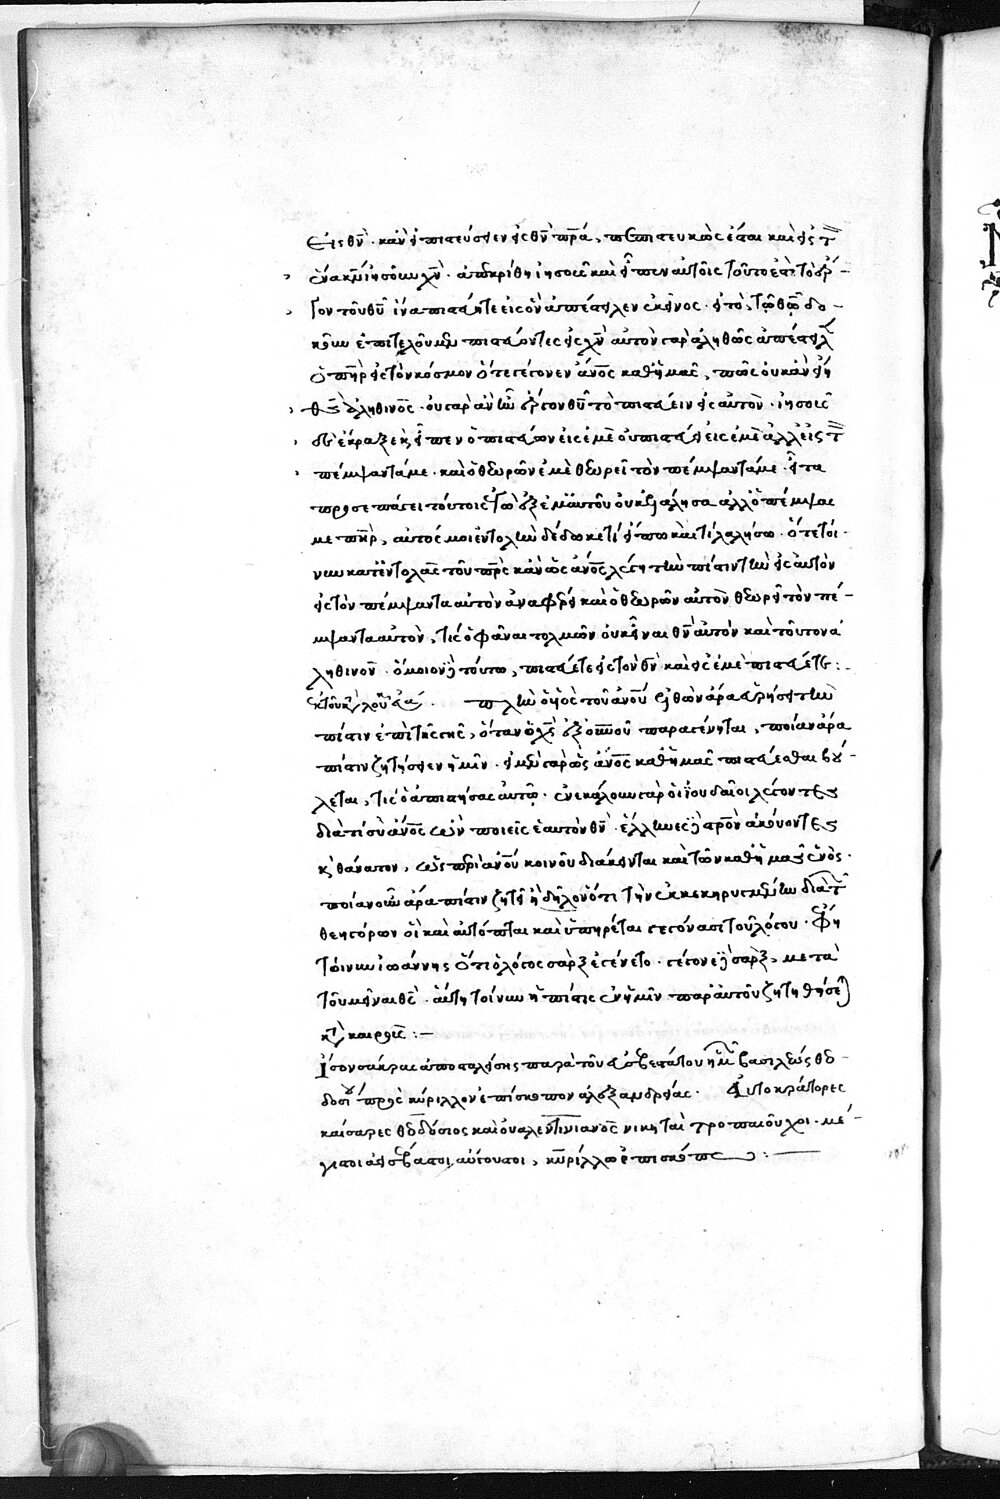 εἰς θν̅· κἂν εἰ πιστεύσειεν εἰς θν̅ πρα̅, πεπιστευκὼς ἔσται καὶ εἰς τ
ἕνα κν̅ ιν̅ χν̅· ἀπεκρίθη ἰησοῦς καὶ εἶπεν αὐτοῖς τοῦτο ἐστὶ τὸ ἔρ-
γον τοῦ θυ̅ ἵνα πιστεύητε εἰς ὃν ἀπέστειλεν ἐκεῖνος· τῶ θω̅
ἐπιτελοῦμεν πιστεύοντες εἰς χν̅ αὐτὸν γὰρ ἀληθῶς ἀπέστειλ
ὁ πηρ̅ εἰς τὸν κόσμον ὅτε γέγονεν ἄνος̅ καθ' ἡμᾶς, πῶς οὐκ ἂν εἴη
θς̅ ἀληθινός· οὐ γὰρ ἂν ἦν ἔργον θυ̅ τὸ πιστεύειν εἰς αὐτόν· ἰησοῦς
δὲ ἔκραξε καὶ εἶπεν ὁ πιστεύων εἰς ἐμὲ οὐ πιστεύει εἰς ἐμὲ ἀλλ' εἰς τ
πέμψαντά με· καὶ ὁ θεωρῶν ἐμὲ θεωρεῖ τὸν πέμψαντά με· εἶτα
πρὸς πᾶσι τούτοις ἐγὼ ἐξ ἐμαυτοῦ οὐκ ἐλάλησα ἀλλ' ὁ πέμψας
με πηρ̅, αὐτός μοι ἐντολὴν δέδωκε τί εἴπω καὶ τί λαλήσω· ὅτε τοί-
νυν κατ' ἐντολὰς τοῦ πρς̅ κἂν ὡς ἄνος̅ λέγῃ τὴν πίστιν τὴν εἰς αὐτὸν
εἰς τὸν πέμψαντα αὐτὸν ἀναφέρει καὶ ὁ θεωρῶν αὐτὸν θεωρεῖ τὸν πέ-
μψαντα αὐτὸν, τίς ὁ φᾶναι τολμῶν οὐκ εἶναι θν̅ αὐτὸν καὶ τοῦτον ἀ
ληθινόν· ὅμοιον τούτω, πιστεύετε εἰς τὸν θν̅ καὶ εἰς ἐμὲ πιστεύετε:
ἐκ τοῦ κατὰ λουκᾶ· πλὴν ὁ υἱὸς τοῦ ἀνου̅ ἐλθὼν ἆρα εὑρήσει τὴν
πίστιν ἐπὶ τῆς γῆς, ὅταν ὁ χς̅ ἐξ οὐνοῦ παραγένηται, ποίαν ἆρα
πίστιν ζητήσειεν ἡμῖν· εἰ μὲν γὰρ ὡς ἄνος̅ καθ' ἡμᾶς πιστεύεσθαι βού-
λεται, τίς ὁ ἀπιστήσας αὐτῶ· ἐνεκάλουν γὰρ οἱ ἰουδαῖοι λέγοντες
διατί σὺ ἄνος̅ ὢν ποιεῖς ἑαυτὸν θν̅· ἕλληνες ἀκούοντες
κ θάνατον, ὡς περὶ ἀνου̅ κοινοῦ διάκεινται καὶ τῶν καθ' ἡμᾶς ἑνός·
ποίαν οὖν ἆρα πίστιν ζητεῖ ἢ δῆλον ὅτι τὴν ἐκκεκηρυγμένην διὰ τ
θεηγόρων οἳ καὶ αὐτόπται καὶ ὑπηρέται γεγόνασι τοῦ λόγου· ἔφη
τοίνυν ἰωάννης ὅτι ὁ λόγος σὰρξ ἐγένετο· γέγονε σὰρξ, μετὰ
τοῦ μεῖναι θς̅· αὕτη τοίνυν ἡ πίστις ἐν ἡμῖν παρ' αὐτοῦ ζητηθήσε
κατὰ καιροὺς:–
ἴσον σάκρας ἀποσταλείσης παρὰ τοῦ εὐσεβεστάτου ἡμῶν βασιλέως θεο-
δοσίου πρὸς κύριλλον ἐπίσκοπον ἀλεξανδρείας· αὐτοκράτορες
καίσαρες θεοδόσιος καὶ οὐαλεντινιανὸς νικηταὶ τροπαιοῦχοι· μέ-
γιστοι ἀεισέβαστοι αὔγουστοι, κυρίλλω ἐπισκόπω:–